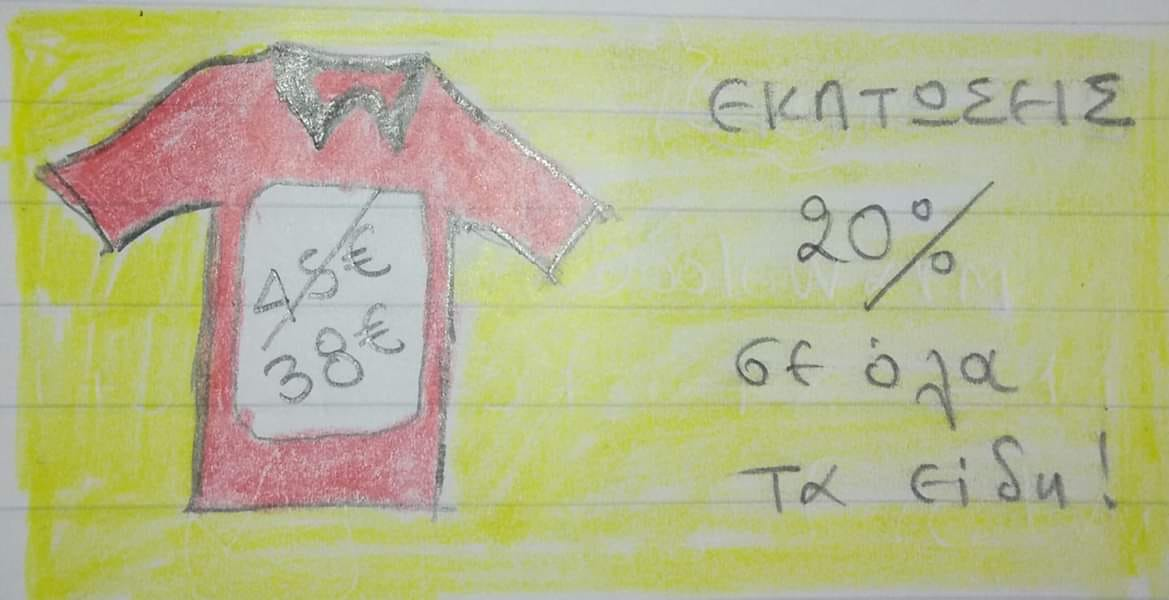 45€
38€
ΕΚΠΤΩΣΕΙΣ
20%
σε όλα
τα είδη!